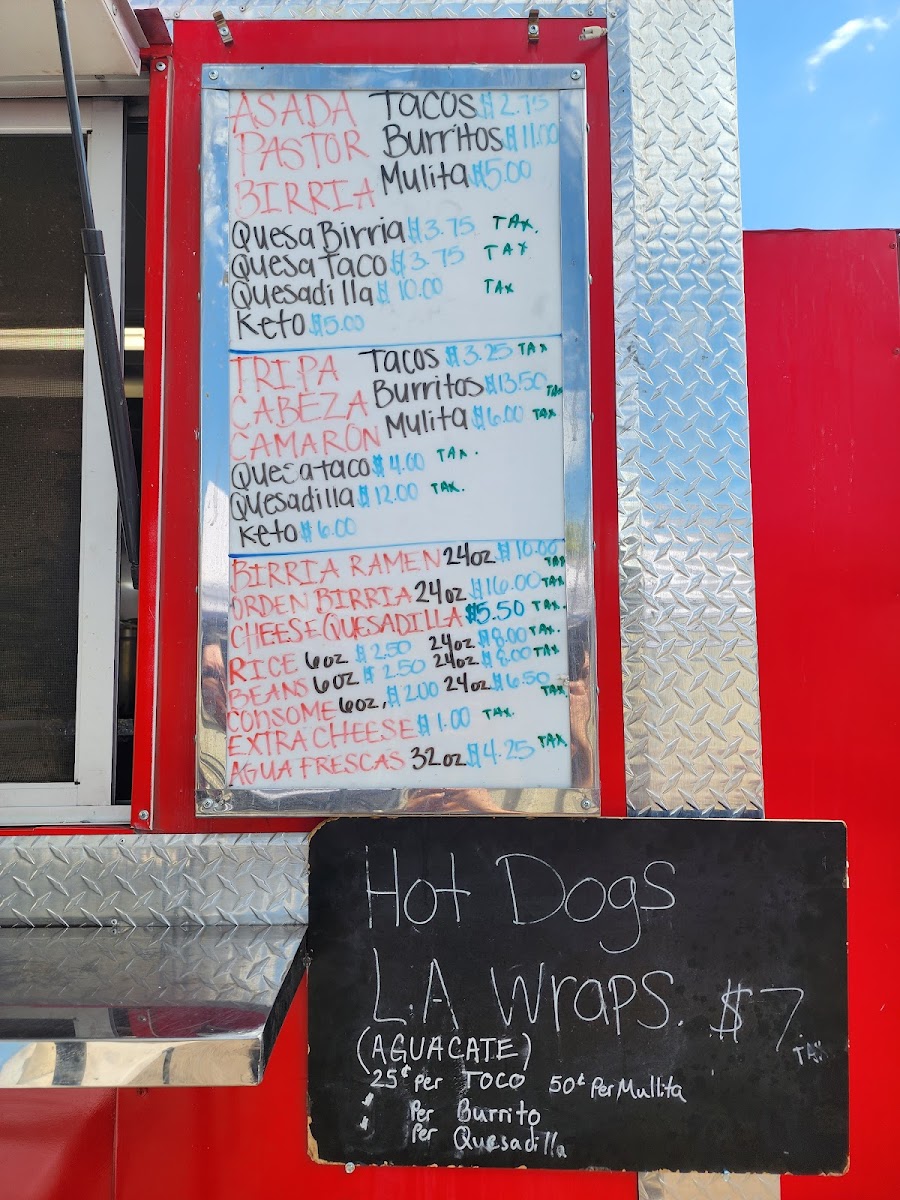 ASADA Tacos $2.75
PASTOR Burritos $11.00
BIRRIA Mulita $5.00
QuesaBirria $3.75 TAX.
Quesa Taco $3.75 TAX
Quesadilla $10.00 TAX
Keto $5.00
TRIPA Tacos $3.25 TAX
CABEZA Burritos $13.50 TAX
CAMARÓN Mulita $6.00 TAX
Quesataco $4.00 TAX.
Quesadilla $12.00 TAX.
Keto $6.00
BIRRIA RAMEN 24oz $10.00 TAX
ORDEN BIRRIA 24oz $16.00 TAX
CHEESE QUESADILLA $5.50 TAX.
RICE 6oz $2.50 24oz $8.00 TAX.
BEANS 6oz $2.50 24oz $8.00 TAX.
CONSOME 6oz, $2.00 24oz $6.50 TAX
EXTRA CHEESE $1.00 TAX.
AGUA FRESCAS 32oz $4.25 TAX
Hot Dogs
L.A Wraps. $7
TAX
(AGUACATE)
25¢ per TOCO 50¢ Per Mullita
Per Burrito
Per Quesadilla